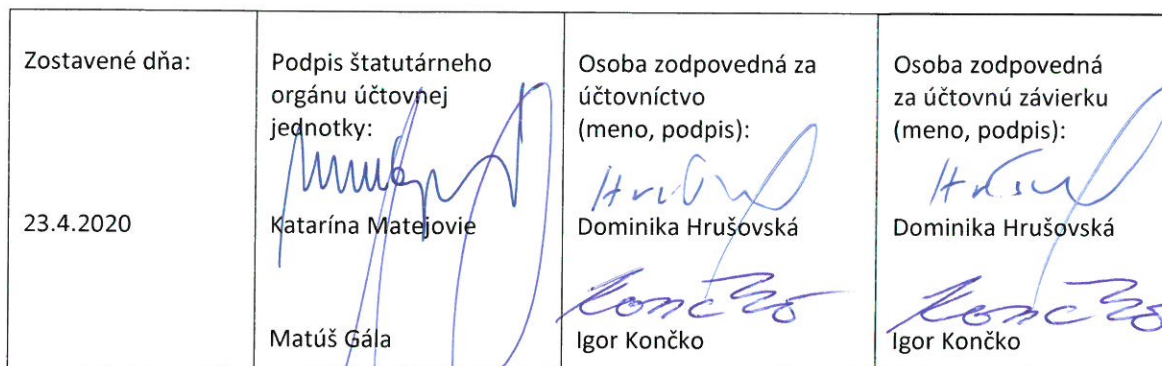 Zostavené dňa:
23.4.2020
Podpis štatutárneho
orgánu účtovnej
jednotky:
Katarína Matejovie
Matúš Gála
Osoba zodpovedná za
účtovníctvo
(meno, podpis):
Dominika Hrušovská
Končko
Igor Končko
Osoba zodpovedná
za účtovnú závierku
(meno, podpis):
Dominika Hrušovská
Končko
Igor Končko